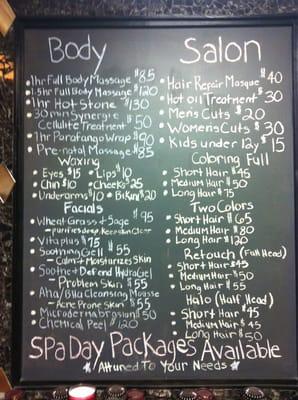 Body
1hr Full Body Massage $85
1.5hr Full Body Massage $120
1hr Hot Stone $130
30min Synergie
Cellulite Treatment $50
1hr Parafango Wrap $90
Pre-natal Massage $85
Waxing
Eyes $15 Lips $10
Chin $10 Cheeks $25
Underarms $10 Bikini $20
Facials
Wheat Grass + Sage $95
- purifies deep, Keeps skin Clear
Vita plus $75
Soothing Gell $55
- Calms + Moisturizes Skin
Soothe + Defend HydraGel
- Problem Skin $55
Aha/Bha Cleansing Mousse
- Acne Prone Skin $55
Microdermabrasion $50
Chemical Peel $120
Salon
Hair Repair Masque $40
Hot oil Treatment $30
Men's Cuts $20
Womens Cuts $30
Kids under 12y $15
Coloring Full
Short Hair $45
Medium Hair $50
Long Hair $75
Two Colors
Short Hair $65
Medium Hair $80
Long Hair $120
Retouch (Full Head)
Short Hair $45
Medium Hair $50
Long Hair $55
Halo (Half Head)
Short Hair $45
Medium Hair $45
Long Hair $50
SPa Day Packages Available
Attuned To Your Needs